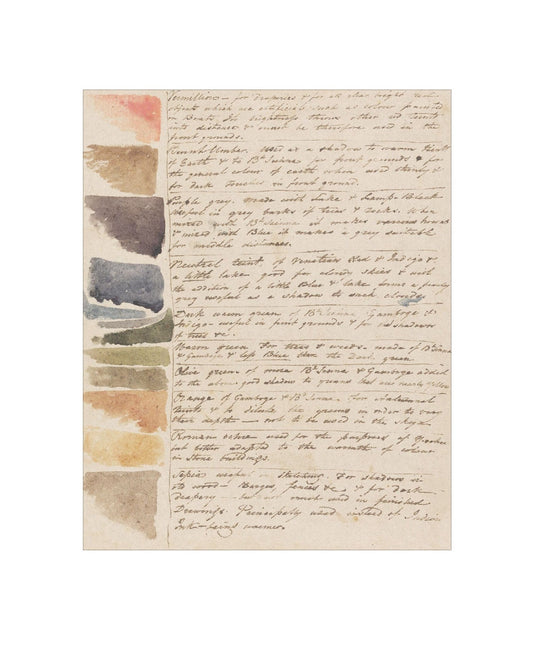 Vermillion — for draperies & for all clear bright red
objects which are artificial such as colour painted
on Boats. Its brightness throws other red teints
into distance & must be therefore used in the
front grounds.
Burnt Umber. Used as a shadow to warm teints
of Earth & to Bt Sienna for front grounds & for
the general colour of earth when used thinly &
for dark touches in front ground.
Purple grey. made with Lake & Lamp Black
useful in grey barks of trees & rocks. When
mixed with Bt Sienna it makes various browns
& mixed with Blue it makes a grey suitable
for middle distances.
Neutral teint, of Venetian Red & Indigo &
a little lake. good for cloudy skies & with
the addition of a little Blue & lake forms a pearly
grey useful as a shadow to such clouds
Dark warm green of Bt Sienna Gamboge &
Indigo useful in front grounds & for shadows
of trees &c.
Warm green For trees & weeds. made of Bt Sienna
& Gamboge & less Blue than the Dark green
Olive green of more Bt Sienna & Gamboge added
to the above good shadow to greens that are nearly Yellow
Orange of Gamboge & Bt Sienna. For Autumnal
teints & to dilute the greens in order to vary
their depths — not to be used in the Skys.
Roman ochre used for the purposes of Gamboge
but better adapted to the warmth of colour
in stone buildings.
Sepia sketches. For shadows in
old wood — Barges, fences &c & for dark
drapery — not much used in finished
Drawings. Principally used instead of Indian
Ink — being warmer.